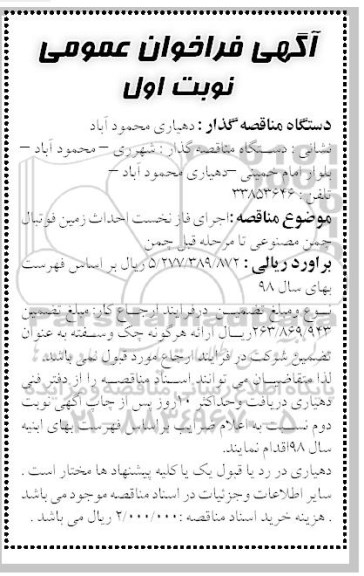 آگهی فراخوان عمومی
نوبت اول
دستگاه مناقصه گذار : دهیاری محمود آباد
نشانی : دستگاه مناقصه گذار : شهرری – محمود آباد –
بلوار امام خمینی –دهیاری محمود آباد –
تلفن : ۳۳۸۵۳۶۴۶
موضوع مناقصه :اجرای فاز نخست احداث زمین فوتبال
چمن مصنوعی تا مرحله قبل چمن
برآورد ریالی : ۵/۲۷۷/۳۸۹/۸۷۲ ریال بر اساس فهرست
بهای سال ۹۸
نوع و مبلغ تضمین در فرایند ارجاع کار: مبلغ تضمین
۲۶۳/۸۶۹/۹۴۳ریال ارائه هرگونه چک وسفته به عنوان
تضمین شرکت در فرآیند ارجاع مورد قبول نمی باشد .
لذا متقاضیان می توانند اسناد مناقصه را از دفتر فنی
دهیاری دریافت وحداکثر ۱۰روز پس از چاپ آگهی نوبت
دوم نسبت به اعلام ضرایب براساس فهرست بهای ابنیه
سال ۹۸اقدام نمایند.
دهیاری در رد یا قبول یک یا کلیه پیشنهاد ها مختار است .
سایر اطلاعات وجزئیات در اسناد مناقصه موجود می باشد
. هزینه خرید اسناد مناقصه :۲/۰۰۰/۰۰۰ ریال می باشد .